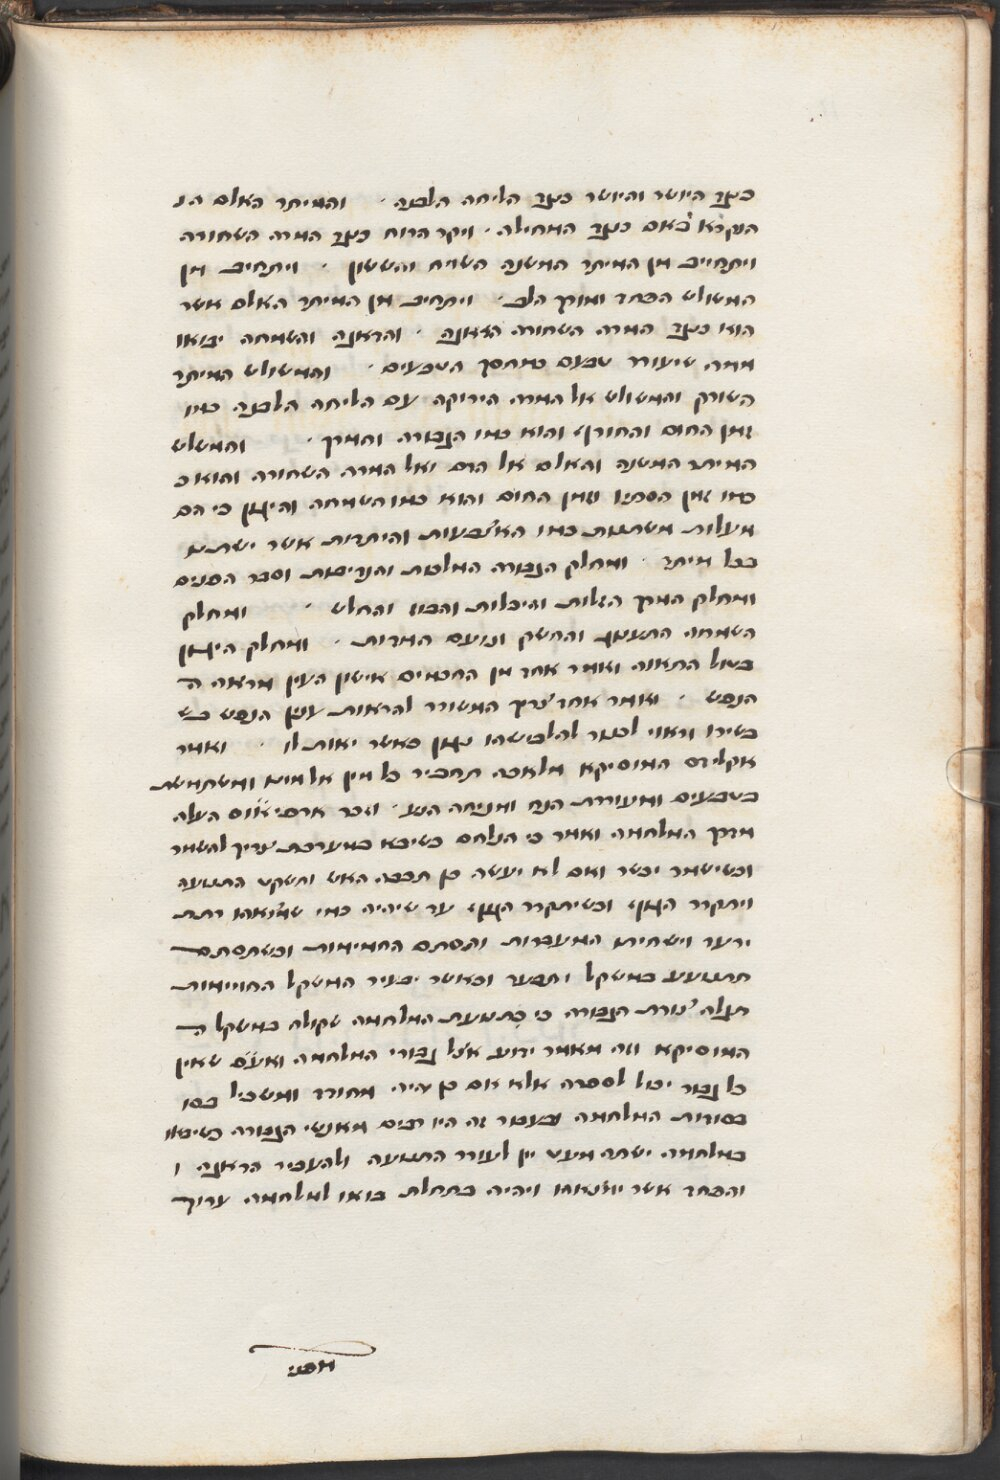 כנגד היושר והיושר כנגד הליחה הלבנה . והמיתר האלם הנ
הנקרא באם כנגד המחילה . ויקר הרוח כנגד המרה השחורה
ויתחייב מן המיתר המשנה השמח והששון . ויתחייב מן
המשולש הפחד ומורך הלב . ויתחייב מן המיתר האלם אשר
הוא כנגד המרה השחורה הדאגה . והדאגה והשמחה יבואו
ממה שיעורר טבעם כמהסך הטבעים . והמשולש המיתר
השורק והמשולש אל המרה הירוקה עם הליחה הלבנה כמו
זמן החום והחורף והוא כמו הגבורה והמורך . והמשלש
המיתר המשנה והאלם אל הדם ואל המרה השחורה והוא כ
כמו זמן הסתיו וזמן החום והוא כמו השמחה והיגון כי הם
מעלות משתנות כמו האצבעות והיתרות אשר ישתנו
בכל מיתר . ומחלק הגבורה המלכות והנדיבות וסבר הפנים
ומחלק המורך הדלות והיכלות והבוז והחלש . ומחלק
השמחה התענוג והחשק ונועם המדות . ומחלק היגון
ביטול התאוה ואמר אחד מן החכמים אישון העין מראה ה
הנפש . ואמר אחד צריך המשורר להראות ענין הנפש בש
בשירו וראוי לנגן להלבישהו נגון כאשר יאות לו . ואמר
אקלידס המוסיקא מלאכה תחביר כל מין אל מינו ומשתמשת
בטבעים ומעוררת הנח ומניחה הנע . וזכר ארסטיאוס העלה
מורך המלחמה ואמר כי הנלחם כשיבא במערכת צריך להשמר
וכשישמר יכשר ואם לא יעשה כן תכבה האש ותשקט התנועה
ויתקרר הגוף וכשיתקרר הגוף עד שיהיה כמי שמצאהו רתת
ירעד וישחיתו המעברות והסתם החמימות וכשתסתם
תתנועע במשקל ותבער וכאשר יבעיר המשקל החמימות
תגלה צורת הגבורה כי תנועת המלחמה שקולה במשקל ה
המוסיקא וזה מאמר ידוע אצל גבורי המלחמה ואע"פ שאין
כל גבור יכול לספרה אלא אם כן יהיה מהודר ומשכיל בסו
בסודות המלחמה ובעבור זה היו רבים מאנשי הגבורה כשיבאו
במלחמה ישתה מעט יין לעורר התנועה ולהעביר הדאגה ו
והפחד אשר ימצאוהו ויהיה בתחלת בואו למלחמה ערוך
מפני